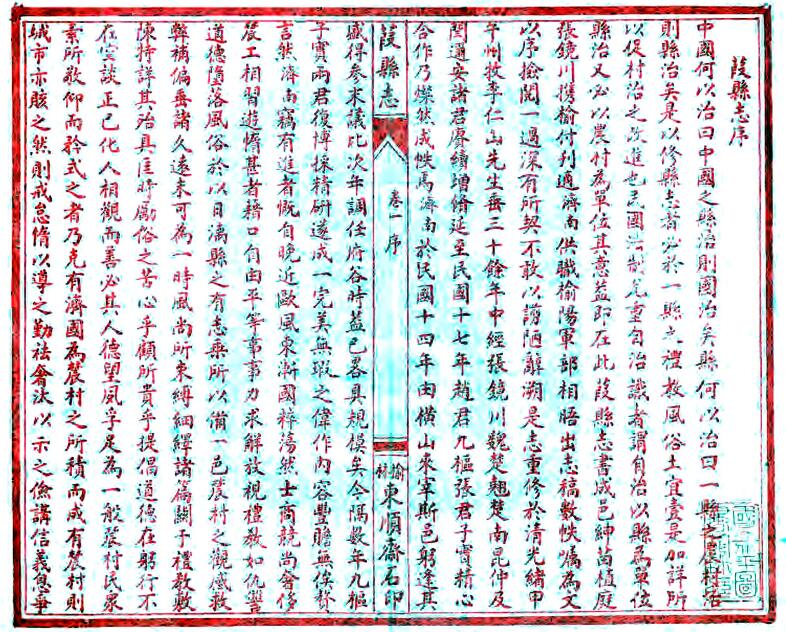 葭縣志序
中國何以治曰中國之縣治則國治矣縣何以治曰一縣之農村治
則縣治矣是以修縣志者必於一縣之禮教風俗土宜壹是加詳所
以促村治之改進也民國法制尤重自治識者謂自治以縣為單位
縣治又必以農村為單位其意蓋即在此葭縣志書咸邑紳苗植庭
張鏡川携榆付刋適濟南供職榆陽軍部相晤出志稿數帙囑為文
以序撿閱一過深有所契不敢以謭陋辭溯是志重修於清光緒甲
午州牧李仁山先生垂三十餘年中經張鏡川魏楚翹楚南昆仲及
閆遁安諸君賡續增脩延至民國十七年趙君九樞張君子實精心
合作乃燦然成帙焉濟南於民國十四年由橫山來宰斯邑躬逢其
葭縣志
卷一序
榆林東順齋石印
盛得參末議比次年調任府谷時葢已畧具規模矣今隔數年九樞
子實兩君復博採精研遂成一完美無瑕之偉作內容豐贍無俟贅
言然濟南竊有進者慨自晚近歐風東漸國粹蕩然士商競尚奢侈
農工相習遊惰甚者藉口自由平等事事力求解放視禮教如仇讐
道德墮落風俗於以日漓縣之有志乘所以備一邑農村之觀感救
弊補偏垂諸久遠未可為一時風尚所束縛紬繹諸篇關于禮教敷
陳特詳其殆具匡時勵俗之苦心乎顧所貴乎提倡道德在躬行不
在空談正己化人相觀而善必其人德望夙孚足為一般農村民眾
素所敬仰而矜式之者乃克有濟國為農村之所積而成有農村則
城市亦賅之然則戒怠惰以導之勤祛奢汰以示之儉講信義息爭